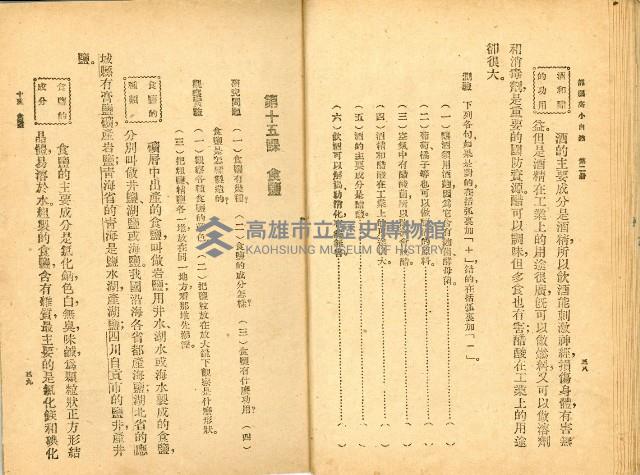 課國高小自然　第二册
三八
酒和醋的功用
酒的主要成分是酒精所以飲酒能刺激神經損傷身體有害無
益但是酒精在工業上的用途很廣旣可以做燃料又可以做溶劑
和消毒劑是重要的國防資源醋可以調味但多食也有害醋酸在工業上的用途
卻很大。
測驗　下列各句如果是對的在括弧裏加「＋」錯的在括弧裏加「－」
(一)釀酒須用酒麯因爲它含有麯菌酵母菌
(二)葡萄橘子等也可以做酒的原料
(三)空氣中有醋酸菌所以
(四)酒精和醋酸在工業上的
(五)酒的主要成分是醋酸
(六)飲酒可以幫助消化
第十五課　食鹽
研究問題　(一)食鹽有幾種？(二)食鹽的成分怎樣？(三)食鹽有什麽功用？(四)
食鹽是怎樣製造的？
觀察實驗　(一)觀察各種食鹽的顏色　(二)把鹽粒放在放大鏡下觀察是什麽形狀
(三)把粗鹽精鹽各一堆放在同一地方看那堆先潮溼
食鹽的種類
礦層中出產的食鹽叫做岩鹽用井水湖水或海水製成的食鹽，
分別叫做井鹽湖鹽或海鹽我國沿海各省都產海鹽湖北省的應
城縣有膏鹽礦產岩鹽青海省的青海是鹽水湖產湖鹽四川自貢市的鹽井產井
鹽。
食鹽的成分
食鹽的主要成分是氯化鈉色白無臭味鹹爲顆粒狀正方形結
晶體易溶於水粗製的食鹽含有雜質最主要的是氯化鎂和碘化
十五　食鹽
三九
高雄市立歷史博物館
KAOHSIUNG MUSEUM OF HISTORY